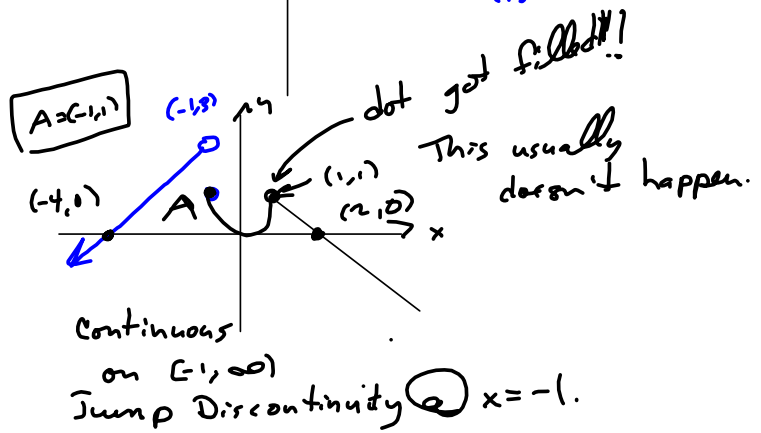 dot got filled!!!
This usually
doesn't happen.
A=(-1,1)
(-1,3)
y
(1,1)
(-4,0)
A
(2,0)
x
Continuous
on [-1, ∞)
Jump Discontinuity @ x = -1.